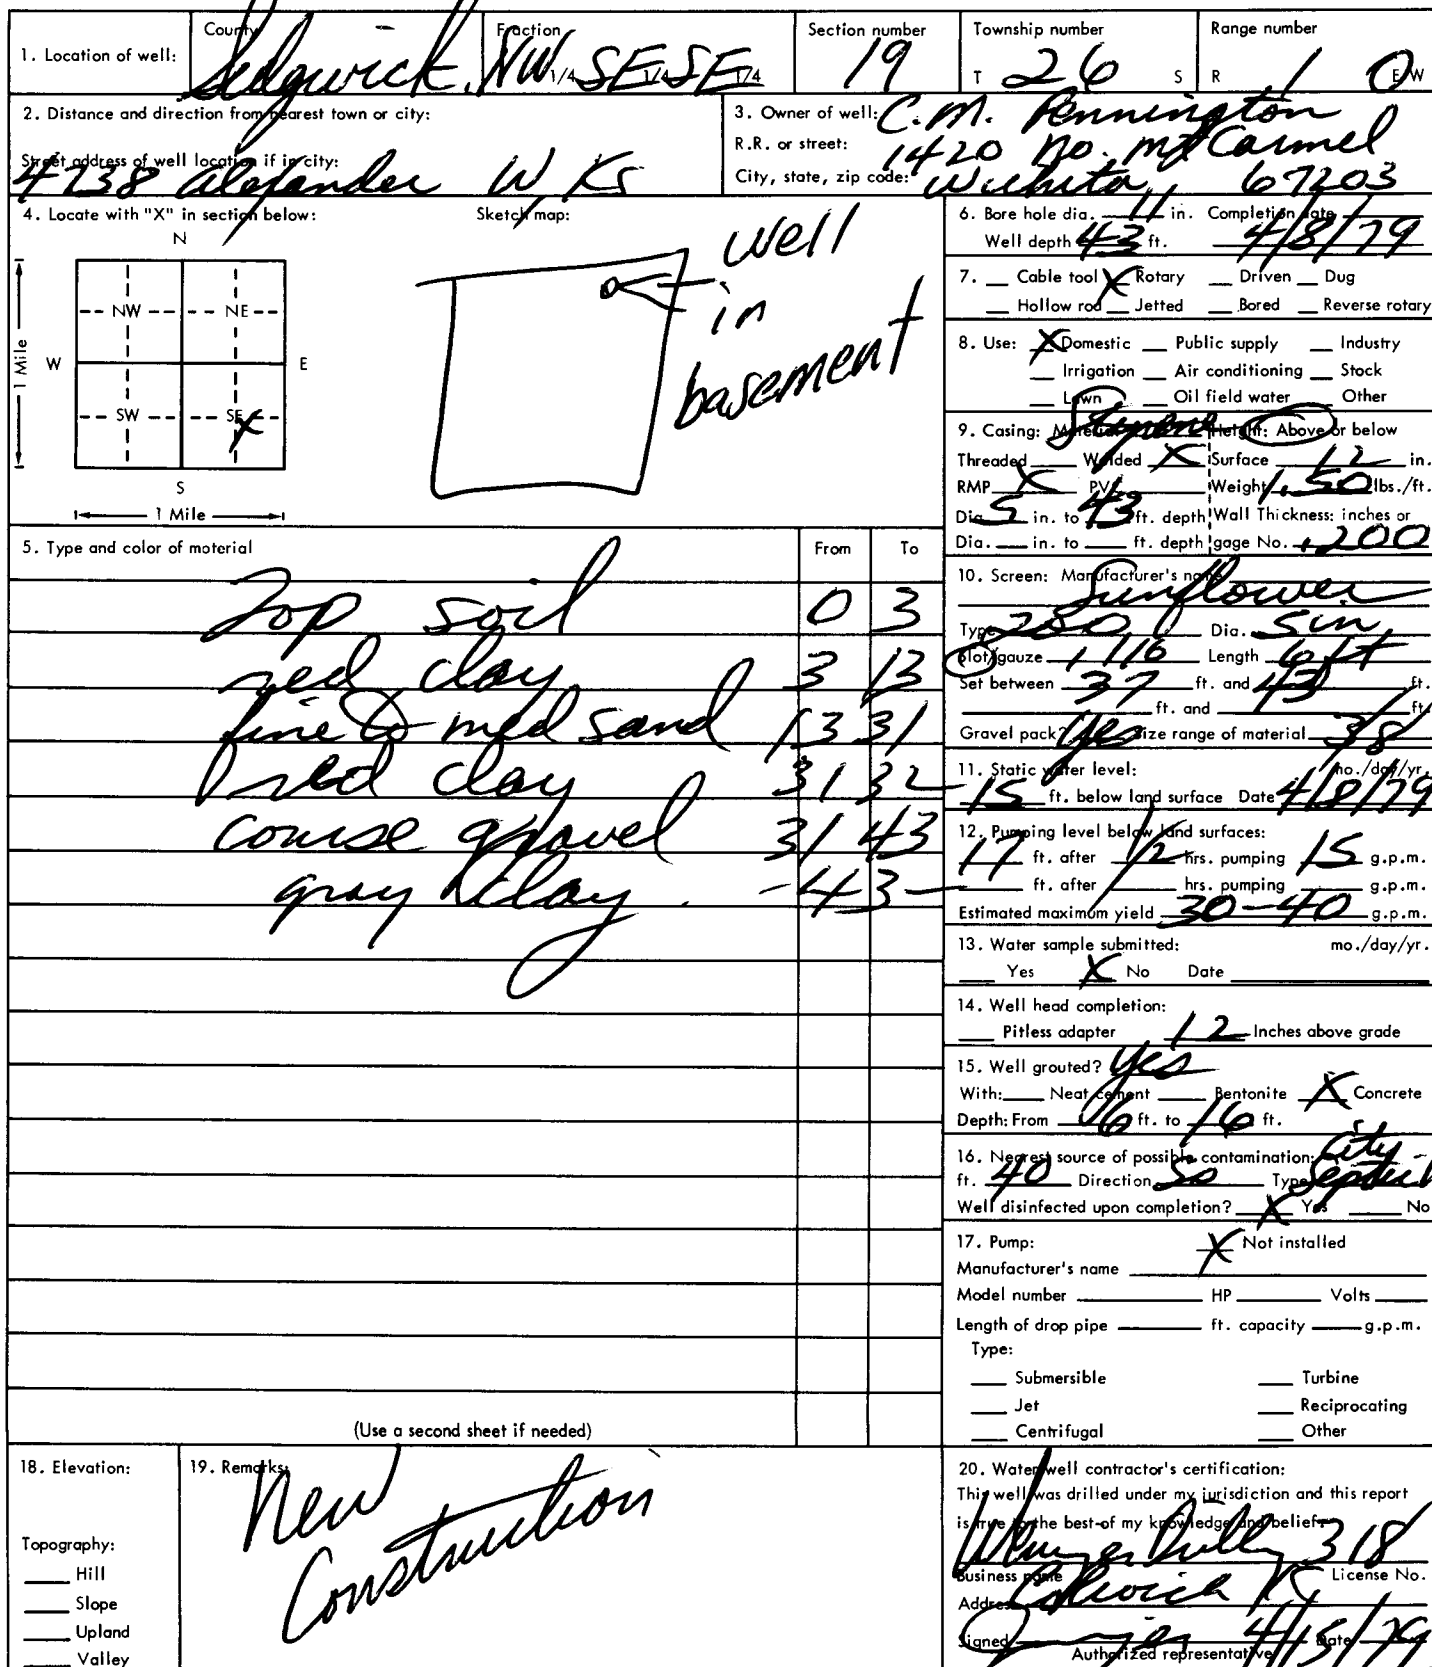 1. Location of well: County Sedgwick Fraction NW 1/4 SE 1/4 SE 1/4 Section number 19 Township number T 26 S Range number R 1 E W
2. Distance and direction from nearest town or city:
Street address of well location if in city:
4738 Alexander W Ks
3. Owner of well: C.M. Pennington
R.R. or street: 1420 No. Mt Carmel
City, state, zip code: Wichita, 67203
4. Locate with "X" in section below:
Sketch map:
N
NW NE
W E
SW SE X
S
1 Mile
1 Mile
well
in
basement
5. Type and color of material From To
Top soil 0 3
red clay 3 13
fine to med sand 13 31
red clay 31 32
course gravel 31 43
gray clay - 43 -
(Use a second sheet if needed)
6. Bore hole dia. 11 in. Completion date
Well depth 43 ft. 4/8/79
7. Cable tool X Rotary Driven Dug
Hollow rod Jetted Bored Reverse rotary
8. Use: X Domestic Public supply Industry
Irrigation Air conditioning Stock
Lawn Oil field water Other
9. Casing: Material Styrene Height: Above or below
Threaded Welded X Surface 12 in.
RMP X PVC Weight 1.50 lbs./ft.
Dia. 5 in. to 43 ft. depth Wall Thickness: inches or
Dia. in. to ft. depth gage No. .200
10. Screen: Manufacturer's name
Sunflower
Type 200 Dia. 5 in
Slot/gauze 1/16 Length 6 ft
Set between 37 ft. and 43 ft.
ft. and ft.
Gravel pack? Yes Size range of material 3/8
11. Static water level: mo./day/yr.
15 ft. below land surface Date 4/8/79
12. Pumping level below land surfaces:
17 ft. after 1/2 hrs. pumping 15 g.p.m.
ft. after hrs. pumping g.p.m.
Estimated maximum yield 30-40 g.p.m.
13. Water sample submitted: mo./day/yr.
Yes X No Date
14. Well head completion:
Pitless adapter 12 Inches above grade
15. Well grouted? Yes
With: Neat cement Bentonite X Concrete
Depth: From 6 ft. to 16 ft.
16. Nearest source of possible contamination: City
ft. 40 Direction So Type
Well disinfected upon completion? X Yes No
17. Pump: X Not installed
Manufacturer's name
Model number HP Volts
Length of drop pipe ft. capacity g.p.m.
Type:
Submersible Turbine
Jet Reciprocating
Centrifugal Other
18. Elevation:
Topography:
Hill
Slope
Upland
Valley
19. Remarks:
New
Construction
20. Water well contractor's certification:
This well was drilled under my jurisdiction and this report
is true to the best of my knowledge and belief.
318
Business name License No.
Address Colwich
Signed 4/15/79 Date
Authorized representative